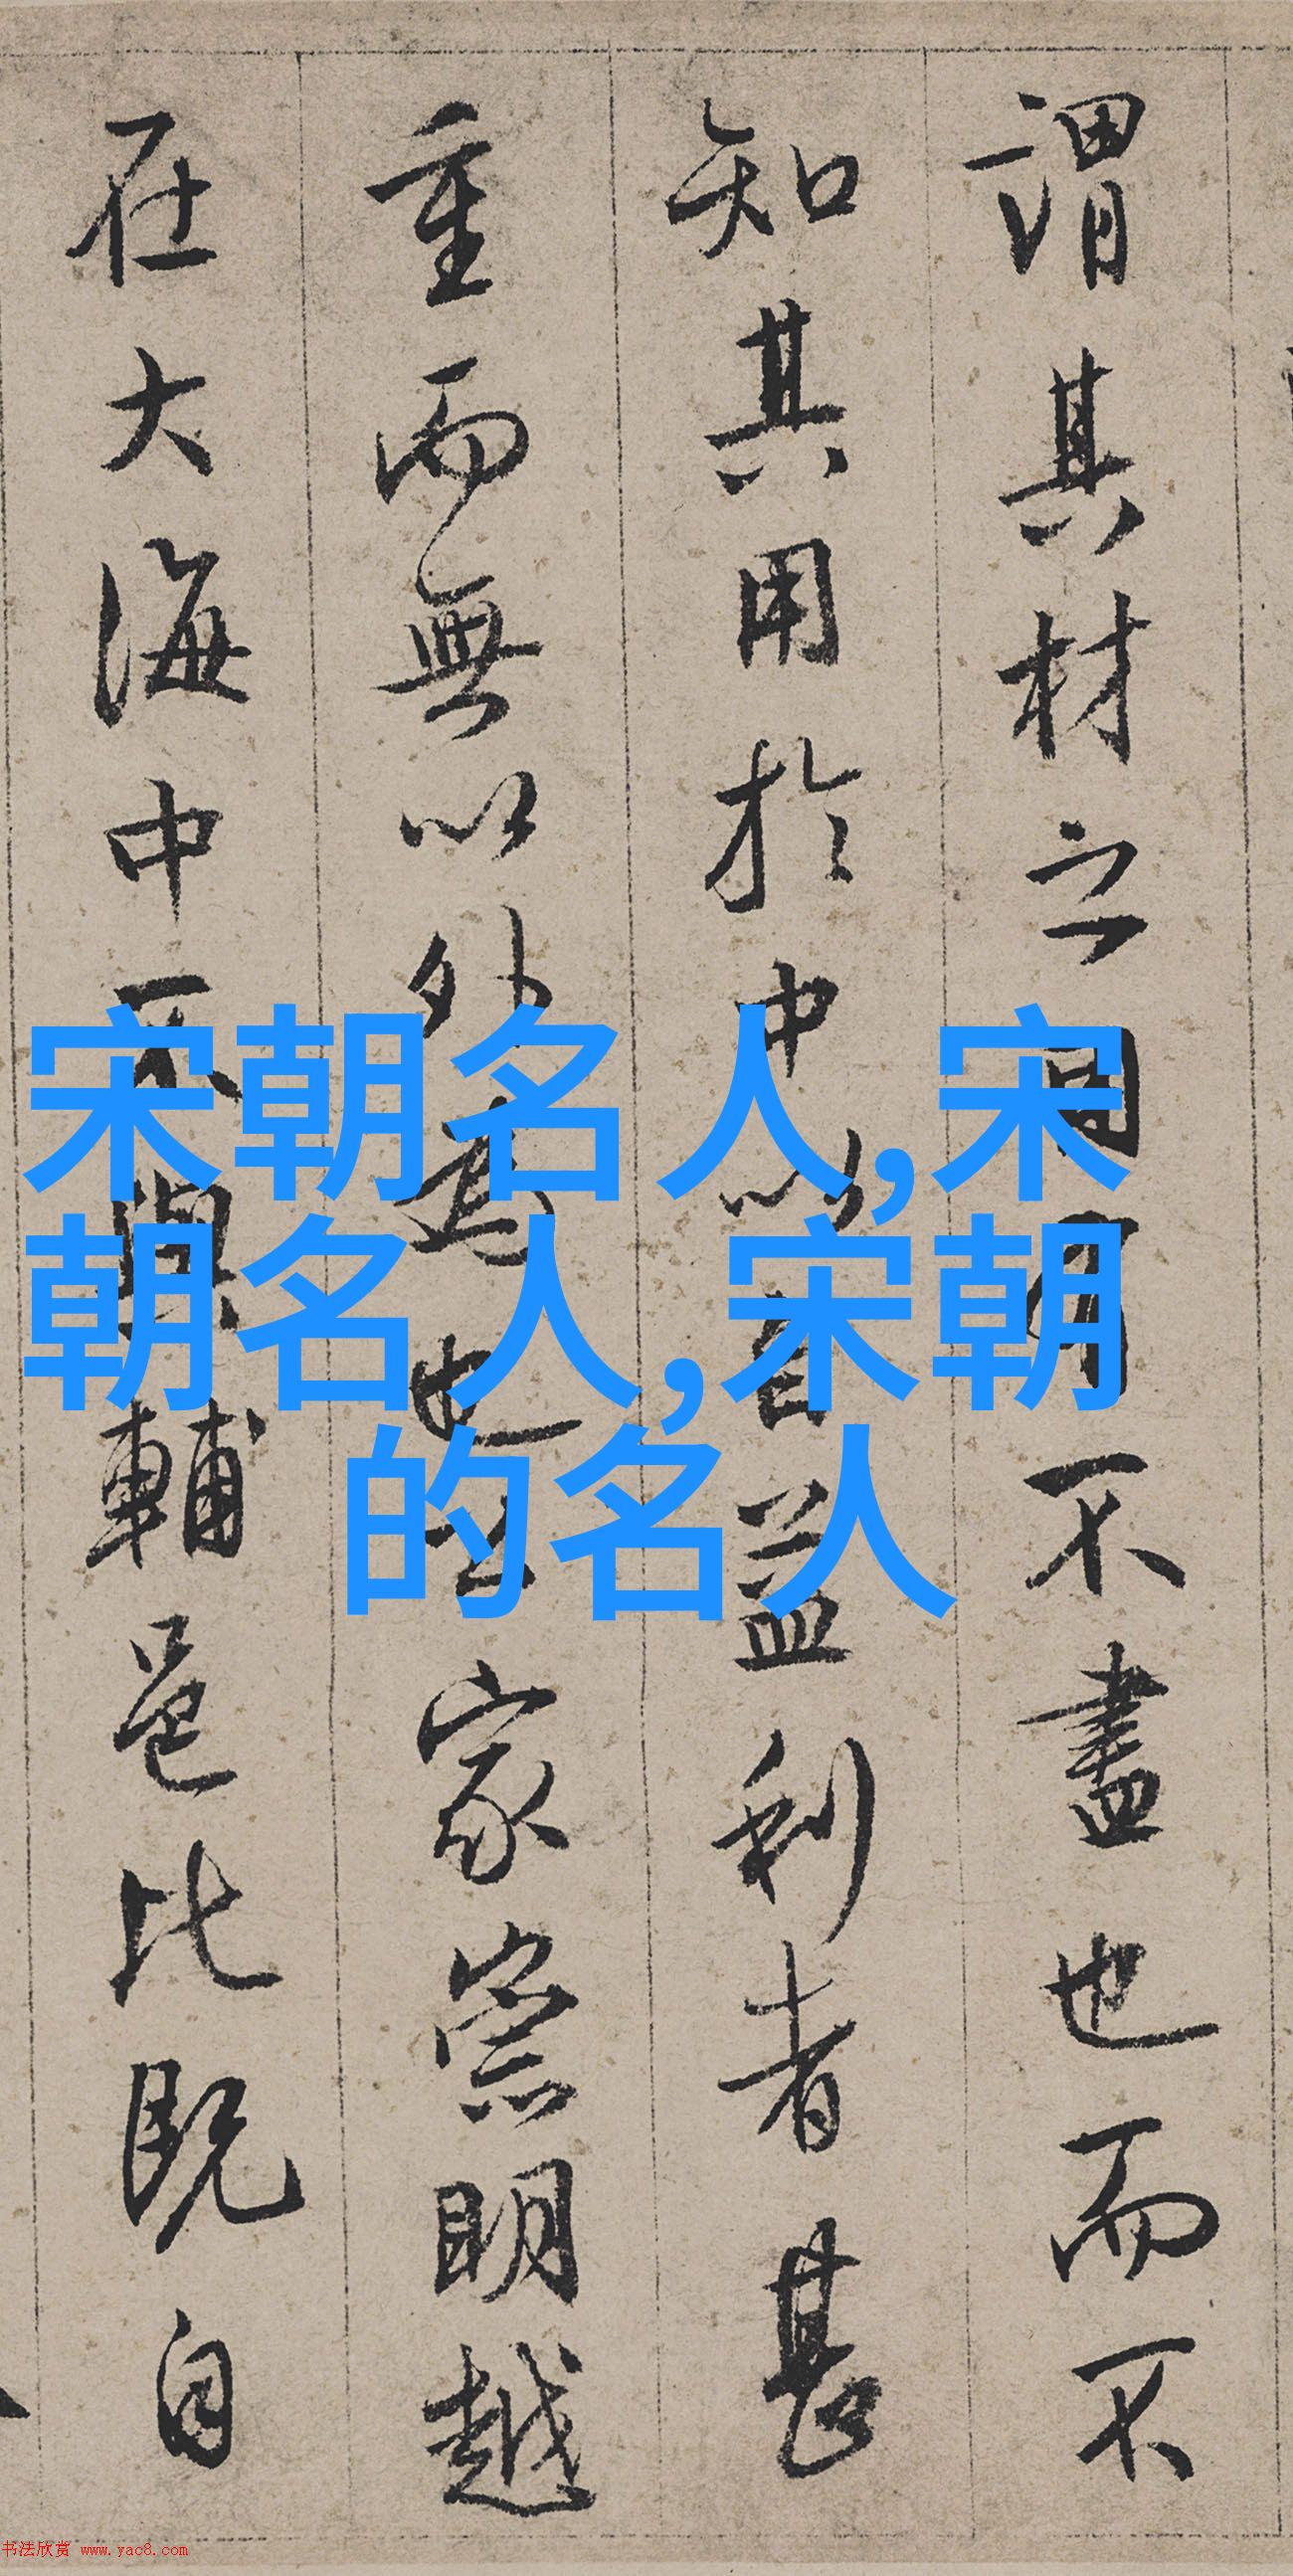 謂其材之用有不盡也而不
知其用於中以自益利者甚
重而無以外為也公家崇明越
在大海中不與輔邑比既自
宋朝名人,宋
朝名人,宋朝
的名人
书法欣赏 www.yac8.com